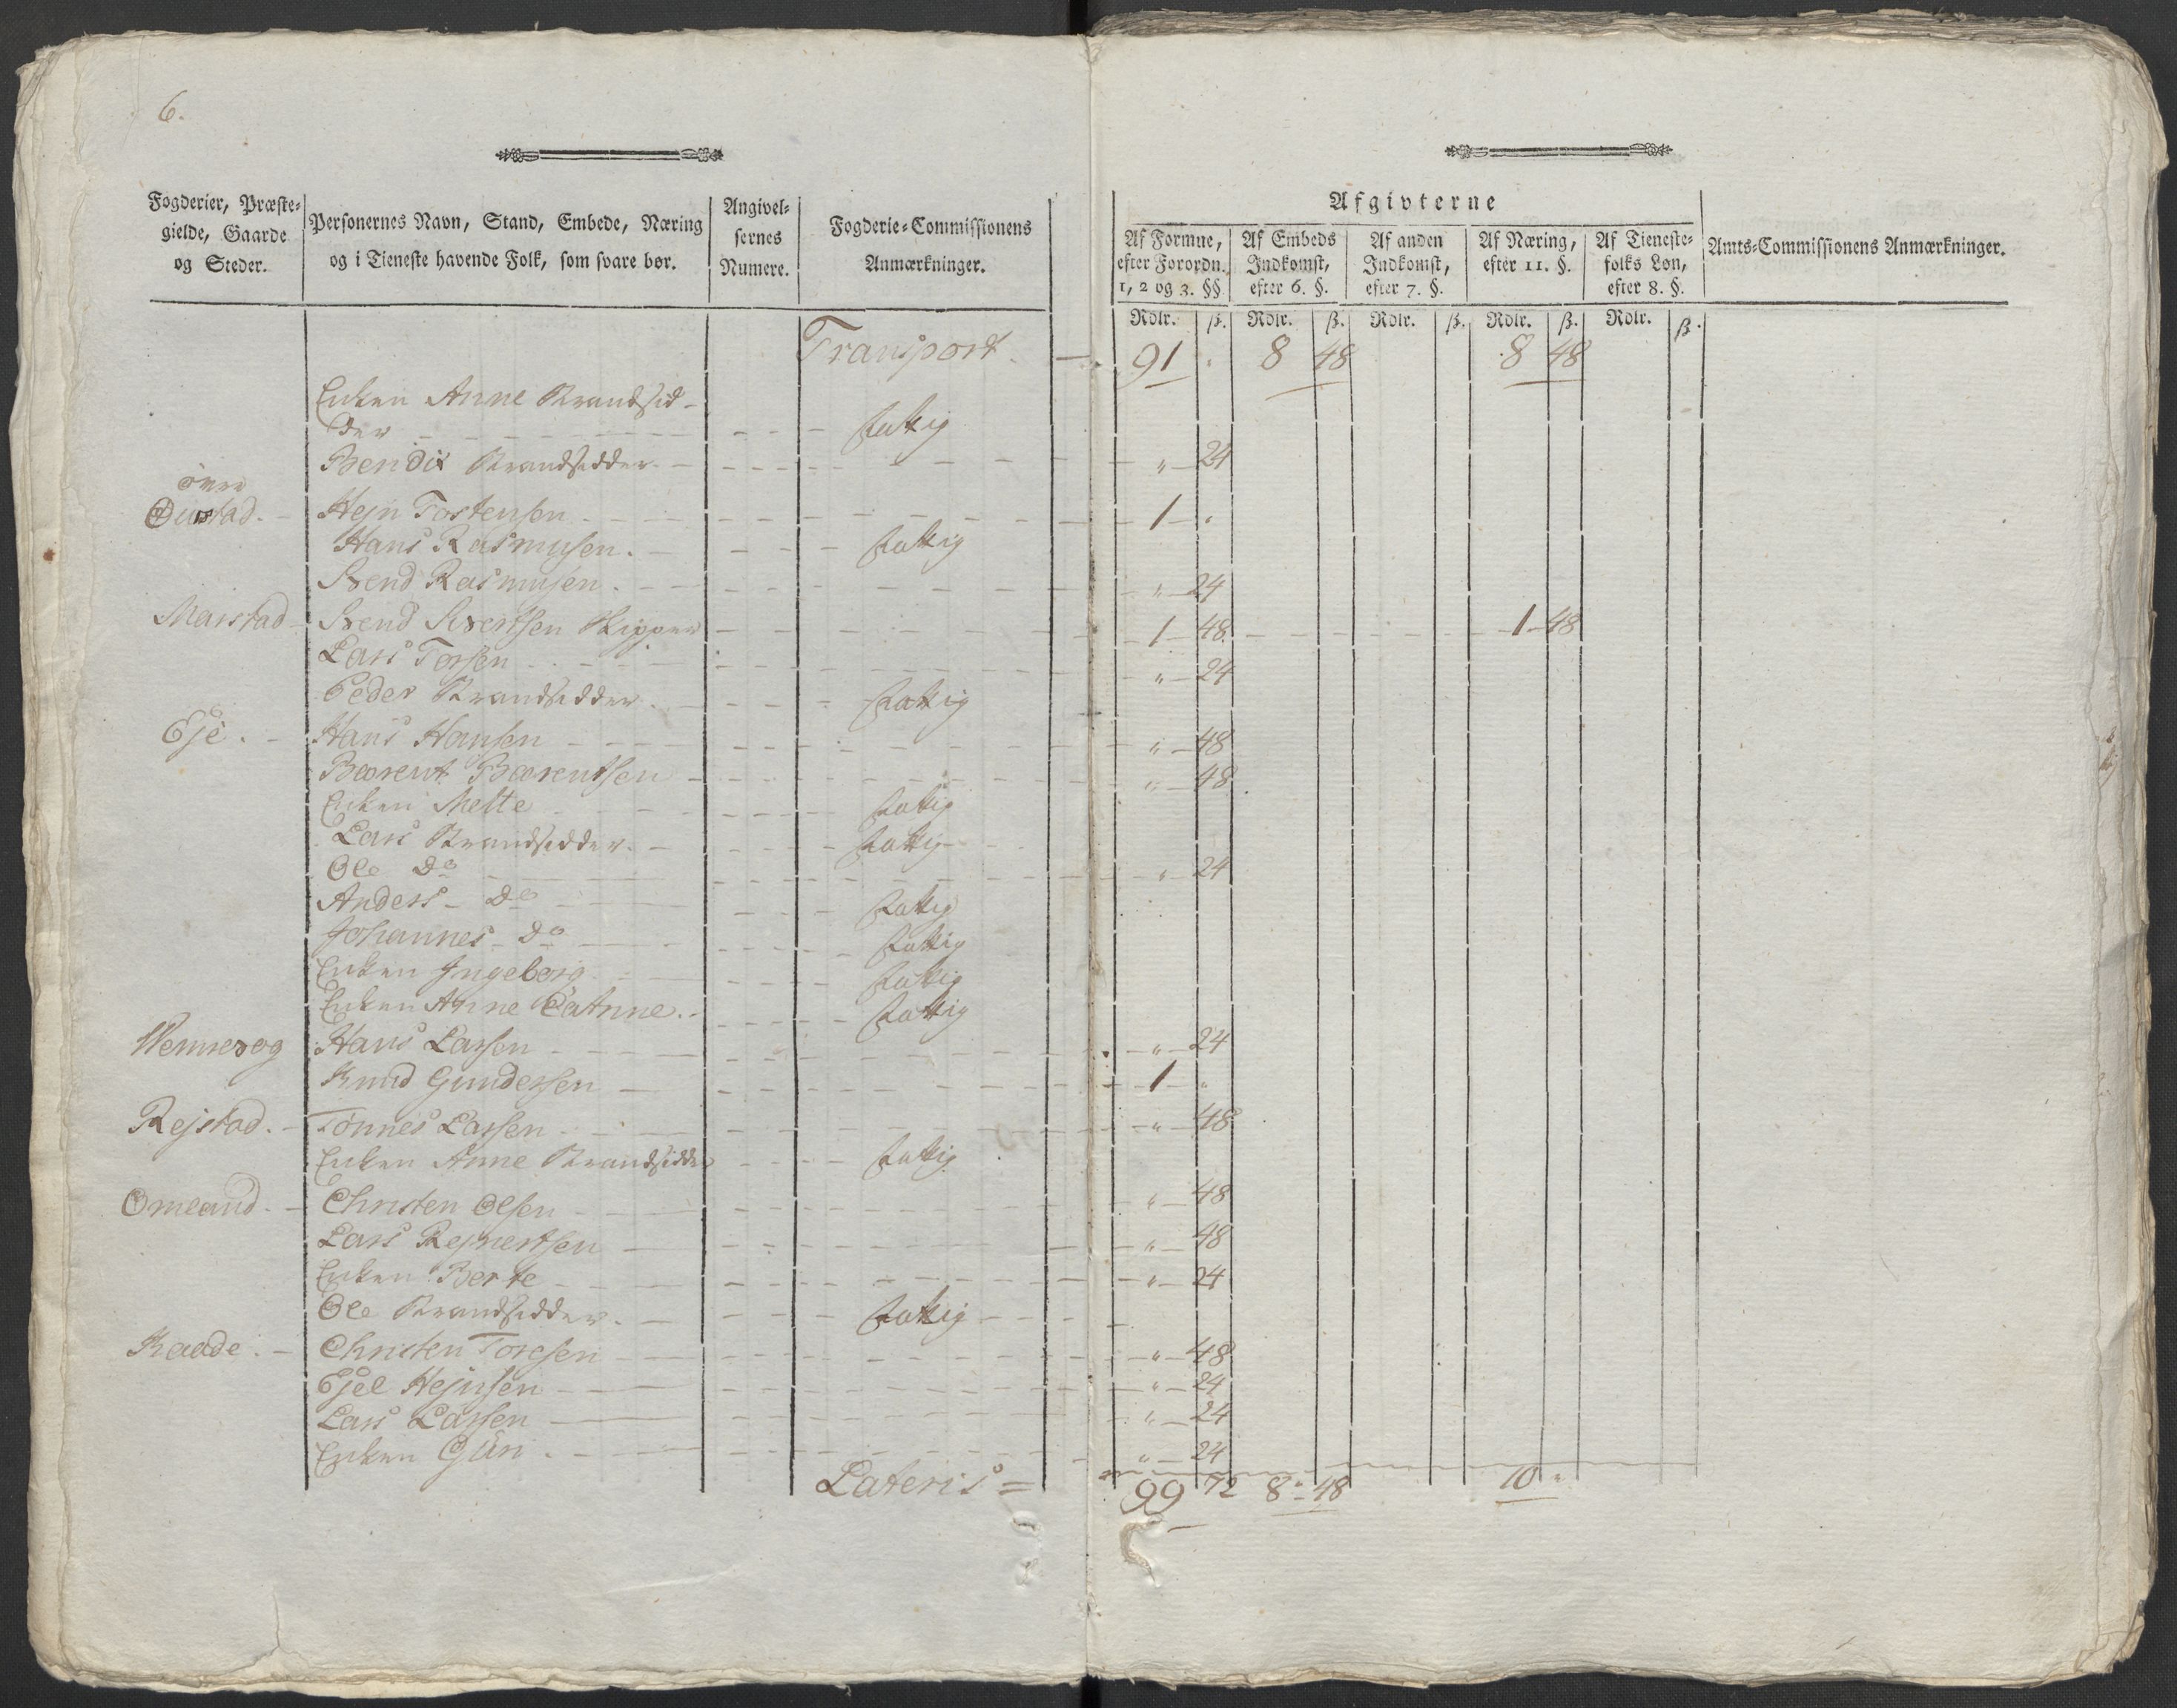 6.
Fogderier, Præste-
gielde, Gaarde
og Steder.
Personernes Navn, Stand, Embede, Næring
og i Tieneste havende Folk, som svare bør.
Angivel-
sernes
Numere.
Fogderie-Commissionens
Anmærkninger.
Afgivterne
Af Formue,
efter Forordn.
1, 2 og 3. §§.
Af Embeds
Indkomst,
efter 6. §.
Af anden
Indkomst,
efter 7. §.
Af Næring,
efter 11. §.
Af Tieneste-
folks Løn,
efter 8. §.
Amts-Commissionens Anmærkninger.
Rdlr. ß. Rdlr. ß. Rdlr. ß. Rdlr. ß. Rdlr. ß.
Transport. — 91 " 8 48 8 48
Enken Anne Strandsid-
der fattig
Bendix Strandsidder " 24
øvre
Hejn Tostensen 1 "
Hans Rasmusen. fattig
Svend Rasmusen. " 24
Maistad Svend Sivertsen Skipper 1 48 1 48
Lars Torsen " 24
Peder Strandsidder. fattig
Eje. Hans Hansen " 48
Barent Barentsen " 48
Enken Mette fattig
Lars Strandsidder. fattig
Ole Do " 24
Anders Do fattig
Johannes Do fattig
Enken Ingeborg fattig
Enken Anne CatAnne. fattig
Hans Larsen " 24
Knud Gundersen 1 "
Rejstad. Tønnes Larsen " 48
Enken Anne Strandsidder fattig
Omland. Christen Olsen " 48
Lars Rejnertsen " 48
Enken Berte " 24
Ole Strandsidder. fattig
Raade. Christen Toresen " 48
Ejel Hejnsen " 24
Lars Larsen " 24
Enken Guri " 24
Lateris = 99 72 8 " 48 10 "